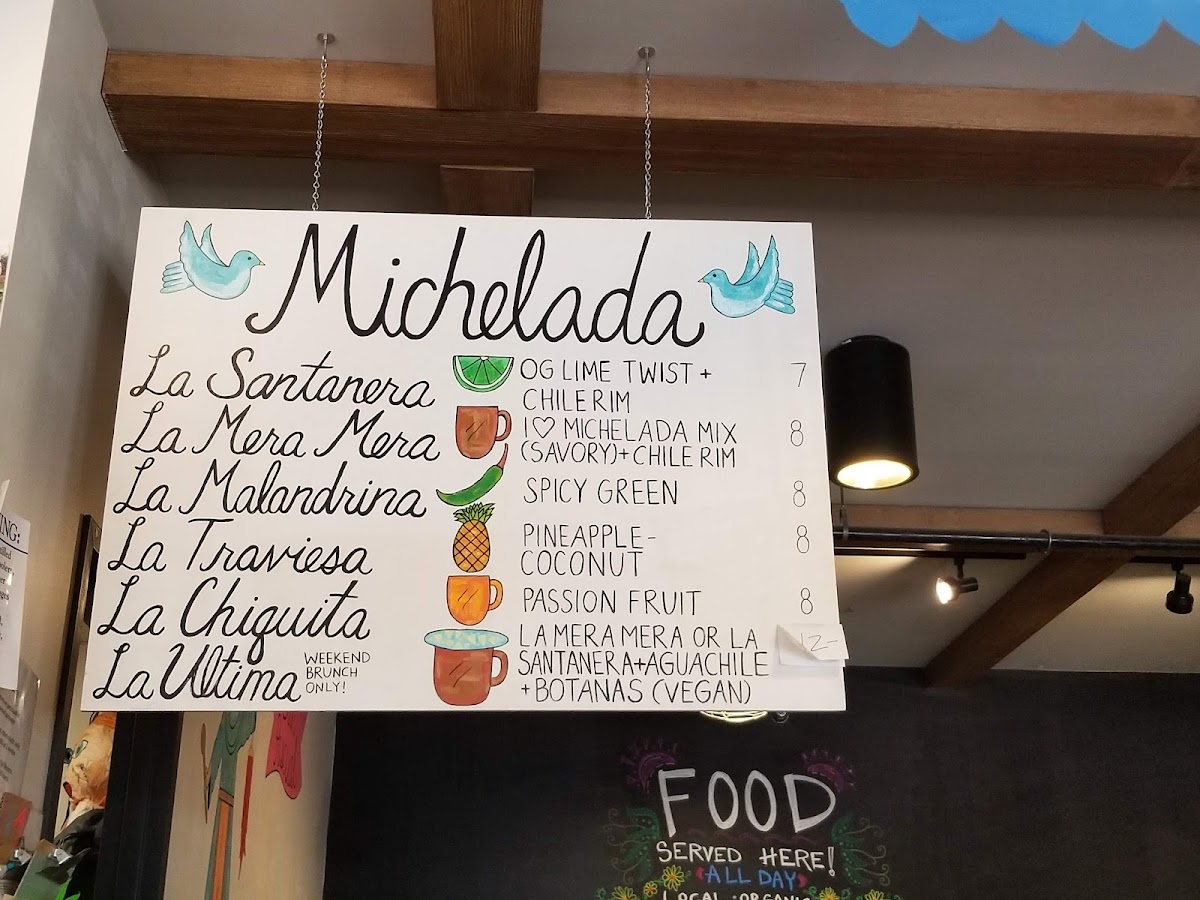 Michelada
La Santanera OG LIME TWIST + 7
CHILE RIM
La Mera Mera I♡ MICHELADA MIX 8
(SAVORY)+CHILE RIM
La Malandrina SPICY GREEN 8
La Traviesa PINEAPPLE- 8
COCONUT
La Chiquita PASSION FRUIT 8
La Ultima WEEKEND
BRUNCH
ONLY!
LA MERA MERA OR LA 12-
SANTANERA+AGUACHILE
+ BOTANAS (VEGAN)
FOOD
SERVED HERE!
ALL DAY
LOCAL